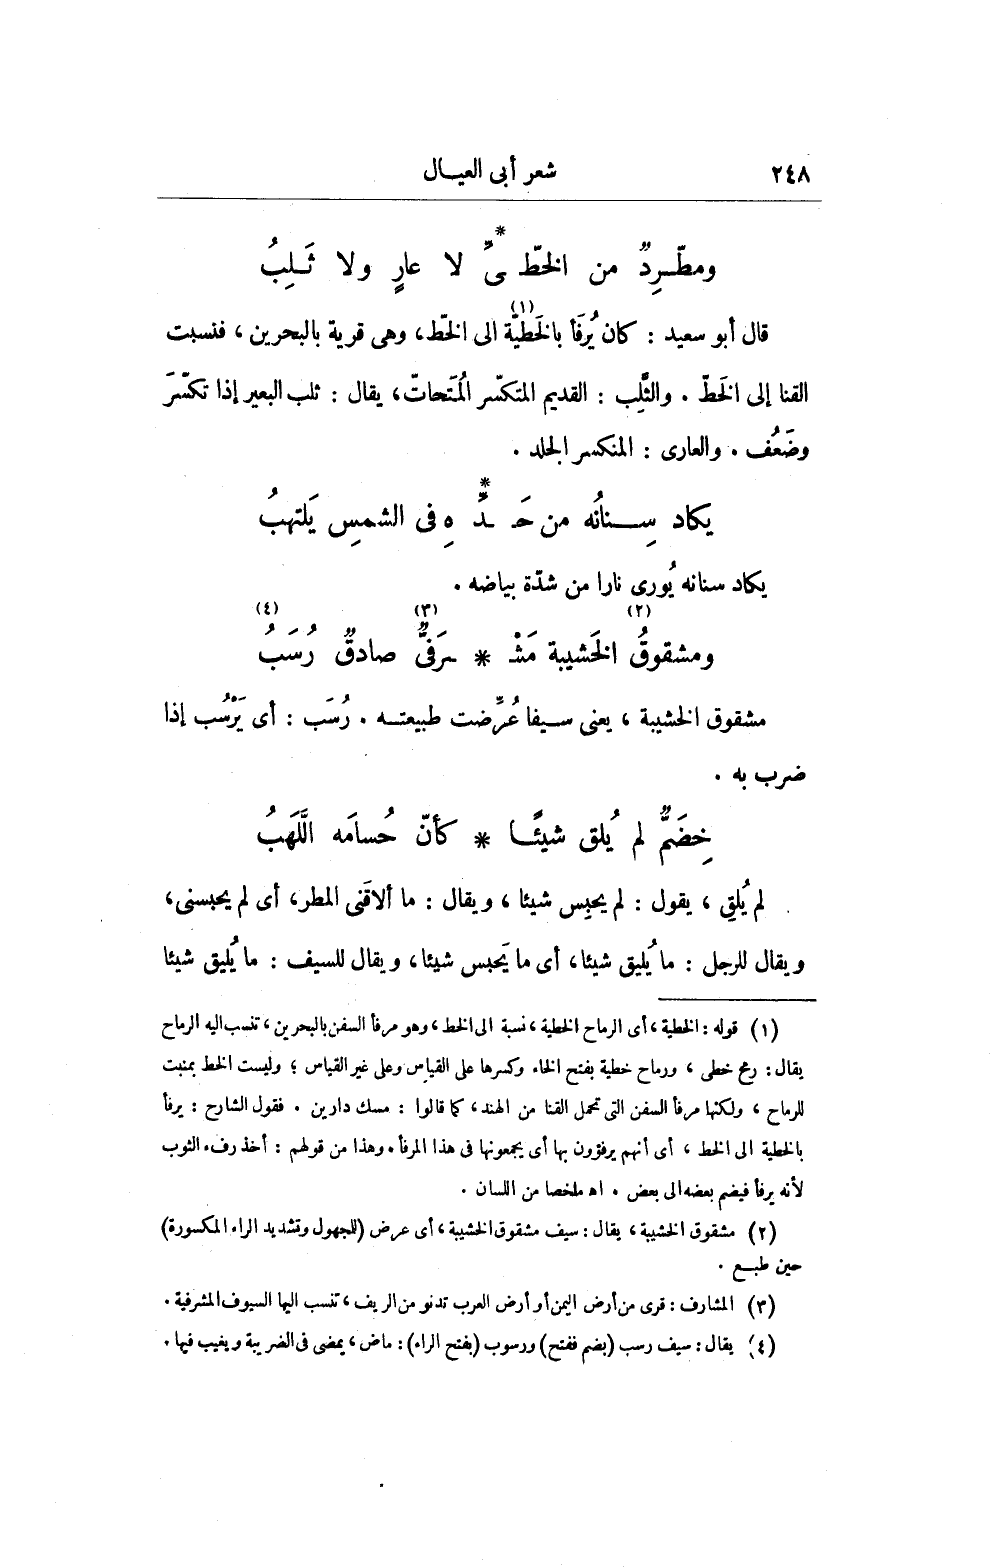 ٢٤٨ شعر أبى العيال
ومطّرِدٌ من الخطّـ * ـىِّ لا عارٍ ولا ثَلِبُ
قال أبو سعيد : كان يُرفَأ بالخَطيّة (١) الى الخطّ، وهى قرية بالبحرين ، فنسبت
القنا إلى الخَطّ . والثَّلِب : القديم المتكسّر المُتَحاتّ، يقال : ثلب البعير إذا تكسّرَ
وضَعُف . والعارى : المنكسر الجلد .
يكاد سِنانُه من حَـ * ـدِّهِ فى الشمسِ يَلتهبُ
يكاد سنانه يُورى نارا من شدّة بياضه .
ومشقوقُ الخَشيبة (٢) مَشْـ * ـرَفىٌّ (٣) صادقٌ رُسَبُ (٤)
مشقوق الخشيبة ، يعنى سيفا عُرِّضت طبيعته . رُسَب : أى يَرْسُب إذا
ضرب به .
خِضَمٌّ لم يُلق شيئًا * كأنّ حُسامَه اللَّهَبُ
لم يُلقِ ، يقول : لم يحبِس شيئا ، ويقال : ما ألاقَنى المطر، أى لم يحبسنى،
ويقال للرجل : ما يُليق شيئا، أى ما يَحبس شيئا، ويقال للسيف : ما يُليق شيئا
(١) قوله : الخطية ، أى الرماح الخطية ، نسبة الى الخط ، وهو مرفأ السفن بالبحرين ، تنسب اليه الرماح
يقال : رمح خطى ، ورماح خطية بفتح الخاء وكسرها على القياس وعلى غير القياس ؛ وليست الخط بمنبت
للرماح ، ولكنها مرفأ السفن التى تحمل القنا من الهند ، كما قالوا : مسك دارين . فقول الشارح : يرفأ
بالخطية الى الخط ، أى أنهم يرفؤون بها أى يجمعونها فى هذا المرفأ . وهذا من قولهم : أخذ رفء الثوب
لأنه يرفأ فيضم بعضه الى بعض . اه ملخصا من اللسان .
(٢) مشقوق الخشيبة ، يقال : سيف مشقوق الخشيبة ، أى عرض (للجهول وتشديد الراء المكسورة)
حين طبع .
(٣) المشارف : قرى من أرض اليمن أو أرض العرب تدنو من الريف ، تنسب اليها السيوف المشرفية .
(٤) يقال : سيف رسب (بضم ففتح) ورسوب (بفتح الراء) : ماض ، يمضى فى الضريبة ويغيب فيها .